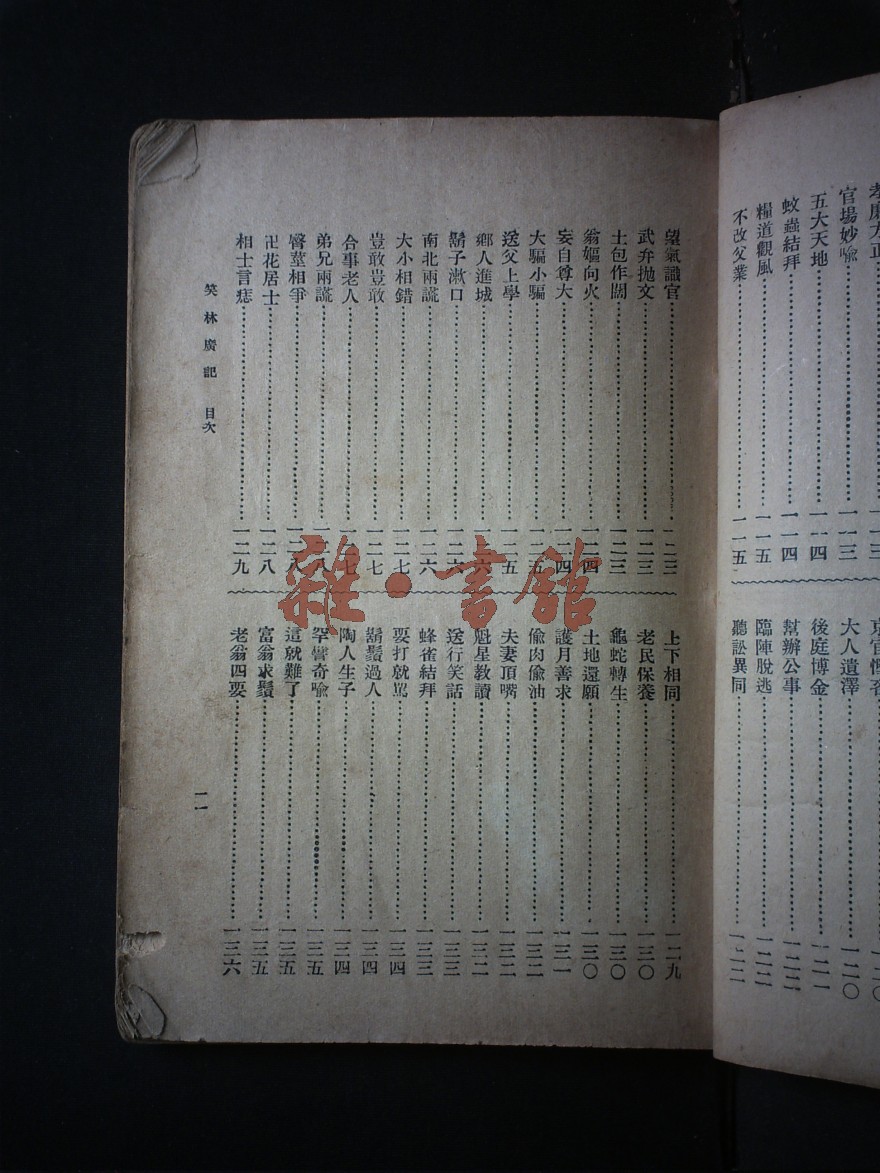 官場妙喻………一一三
五大天地………一一四
蚊蟲結拜………一一四
糧道觀風………一一五
不改父業………一一五
大人遺澤………一二〇
後庭博金………一二一
幫辦公事………一二二
臨陣脫逃………一二二
聽訟異同
望氣識官
武弁拋文………一二三
土包作闊………一二三
翁嫗向火
妄自尊大
大騙小騙
送父上學………一二五
鄉人進城
鬍子漱口………一二六
南北兩謊………一二六
大小相錯………一二七
豈敢豈敢………一二七
合事老人
弟兄兩謊
臀莖相爭
卍花居士………一二八
相士言痣………一二九
上下相同………一二九
老民保養………一三〇
龜蛇轉生………一三〇
土地還願………一三〇
護月善求………一三一
偷肉偷油………一三二
夫妻頂嘴………一三二
魁星教讀………一三二
送行笑話………一三三
蜂雀結拜………一三三
要打就罵………一三四
鬍鬚過人………一三四
陶人生子………一三四
罕譬奇喻………一三五
這就難了………一三五
富翁求鬚………一三五
老翁四要………一三六
笑林廣記 目次
一一
雜·書館